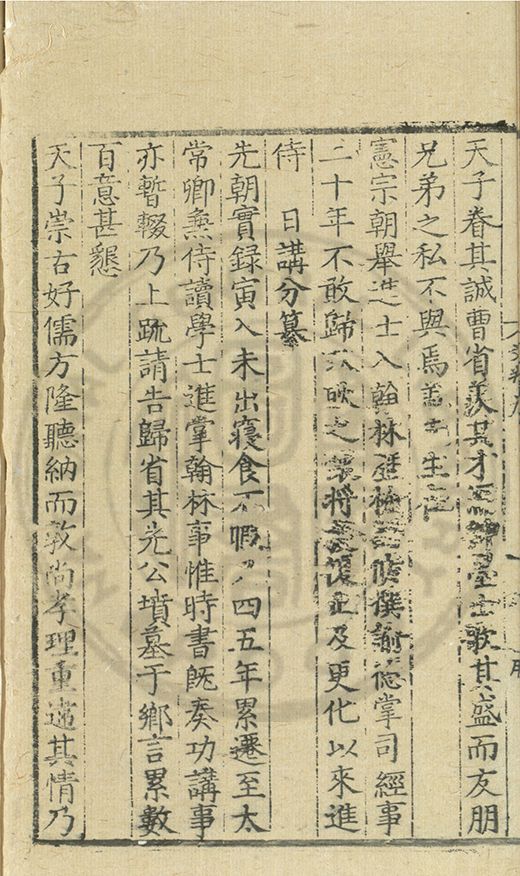 天子眷其誠曹省羨其才臺士歌其盛而友朋
兄弟之私不與焉先生在
憲宗朝舉進士入翰林歷撰諭德掌司經事
二十年不敢歸之懷將及更化以來進
侍　日講分纂
先朝實録寅入未出寢食不暇者四五年累遷至太
常卿兼侍讀學士進掌翰林事惟時書既奏功講事
亦暫輟乃上疏請告歸省其先公墳墓于鄉言累數
百意甚懇
天子崇右好儒方隆聽納而敦尚孝理重違其情乃